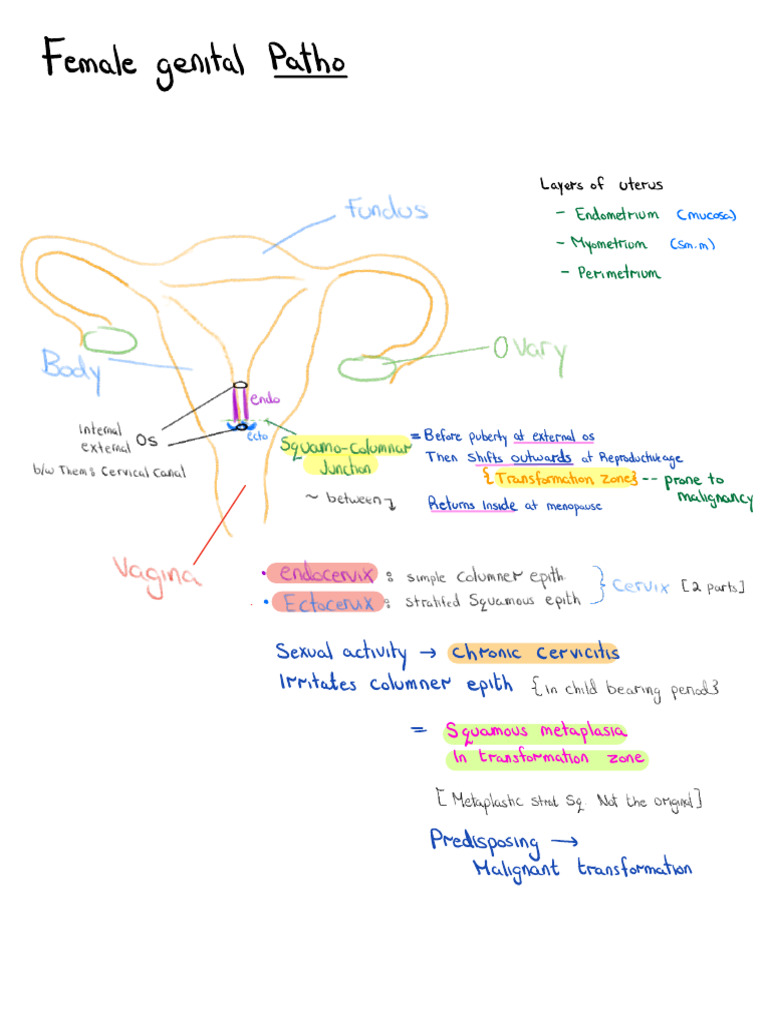 Female genital Patho
Layers of uterus
- Endometrium (mucosa)
- Myometrium (Sm.m)
- Perimetrium
Fundus
Ovary
Body
endo
ecto
internal
external Os
b/w Them: Cervical Canal
Squamo-Columnar
Junction
~ between
= Before puberty at external os
Then shifts outwards at Reproductive age
{Transformation zone} -- prone to
malignancy
Returns inside at menopause
Vagina
• endocervix : simple Columner epith
• Ectocervix : stratifed Squamous epith
} Cervix [2 parts]
Sexual activity → chronic cervicitis
Irritates columner epith {in child bearing period}
= Squamous metaplasia
In transformation zone
[Metaplastic strat Sq. Not the original]
Predisposing →
Malignant transformation